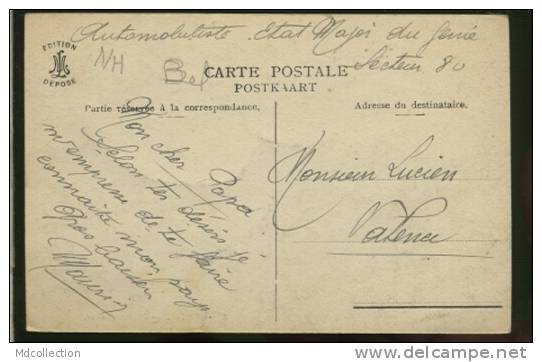 Automobiliste Etat Major du Genie
Secteur 80
EDITION
DÉPOSÉ
NH
Bel
CARTE POSTALE
POSTKAART
Partie réservée à la correspondance.
Adresse du destinataire.
Mon cher Papa
Selon ton désir je
m'empresse de te faire
connaitre mon
Gros baisers
Maurice
Monsieur Lucien
Valence
Mdcollection
http://www.delcampe.net